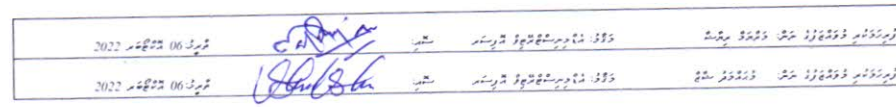 ފުރިހަމަކުރި މުވައްޒަފުގެ ނަން: މަރްޔަމް ރިޔާޝާ މަޤާމު: އެޑްމިނިސްޓްރޭޓިވް އޮފިސަރ ސޮއި: ތާރީޚު: 06 އޮކްޓޯބަރ 2022
ޗެކުކުރި މުވައްޒަފުގެ ނަން: މުޙައްމަދު ޝާޒް މަޤާމު: އެޑްމިނިސްޓްރޭޓިވް އޮފިސަރ ސޮއި: ތާރީޚު: 06 އޮކްޓޯބަރ 2022